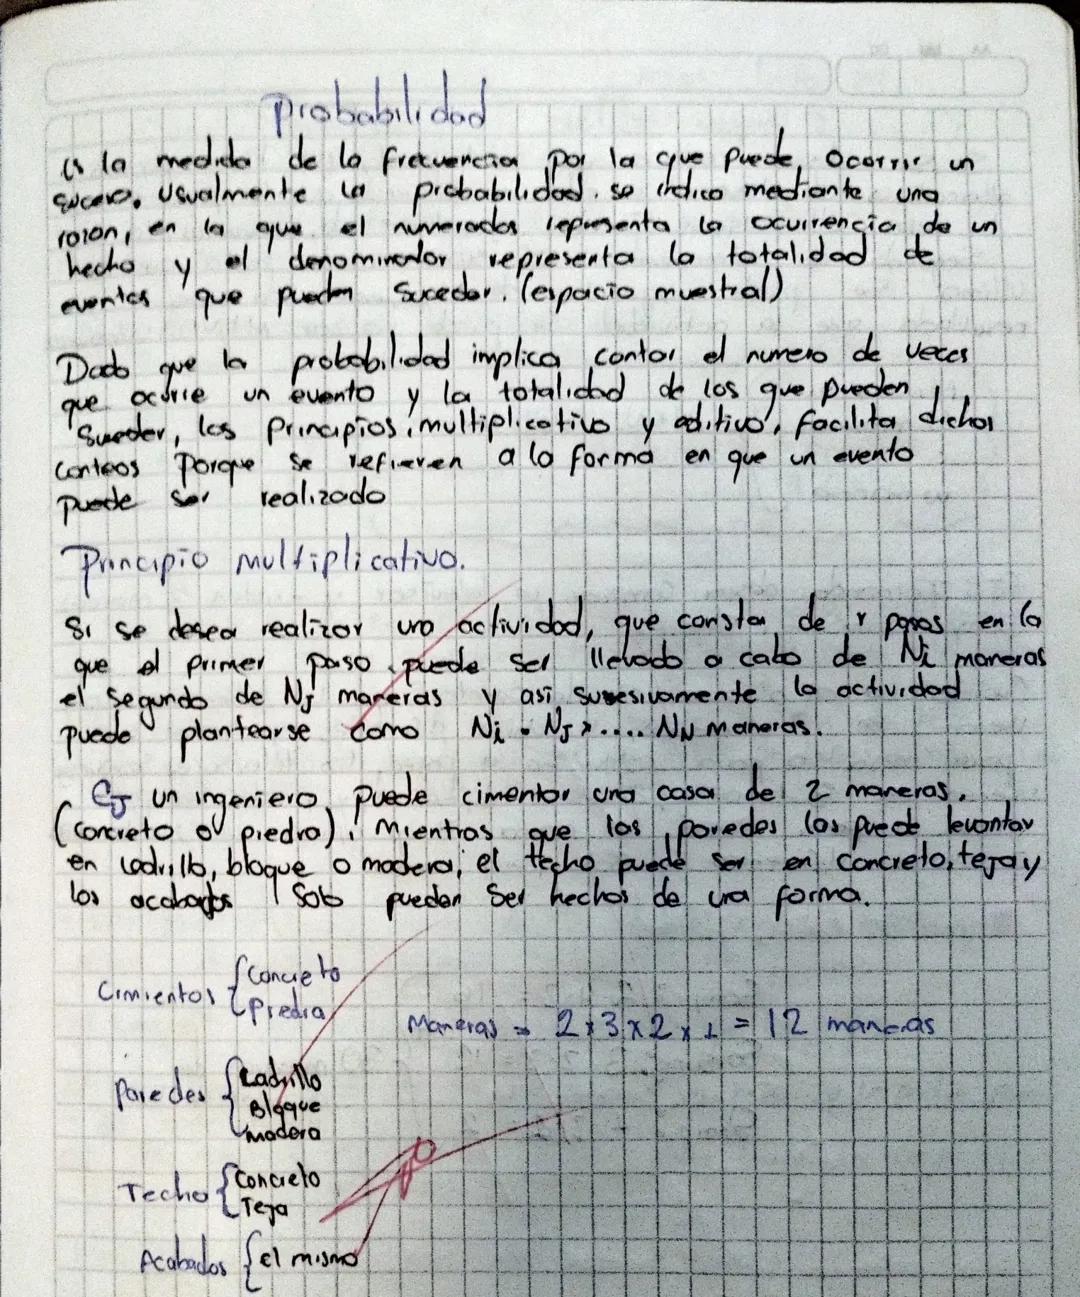 Probabilidad
es la medida de la frecuencia por la que puede ocorrir un
suceso, usualmente la probabilidad. se indica mediante una
razon, en la que el numerador representa la ocurrencia de un
hecho y el denominador representa la totalidad de
eventos que pueden suceder. (espacio muestral)
Dado que la probabilidad implica contar el numero de veces
que ocurre un evento y la totalidad de los que pueden
suceder, los Principios, multiplicativo y aditivo, facilita dichos
conteos porque se refieren a la forma en que un evento
puede ser realizado
Principio multiplicativo.
Si se desea realizar una actividad, que consta de r pasos en la
que el primer paso puede ser llevado a cabo de Ni maneras
el segundo de NJ maneras y asi, susesivamente la actividad
puede plantearse como Ni · NJ × .... NN maneras.
EJ un ingeniero puede cimentar una casa de 2 maneras.
(concreto o piedra), mientras que las paredes las puede levantar
en ladrillo, bloque o madera; el techo puede ser en concreto, teja y
los acabados solo pueden ser hechos de una forma.
Cimientos { Concreto
Piedra
Maneras = 2 x 3 x 2 x 1 = 12 maneras
Paredes { Ladrillo
Bloque
madera
Techo { Concreto
Teja
Acabados { el mismo